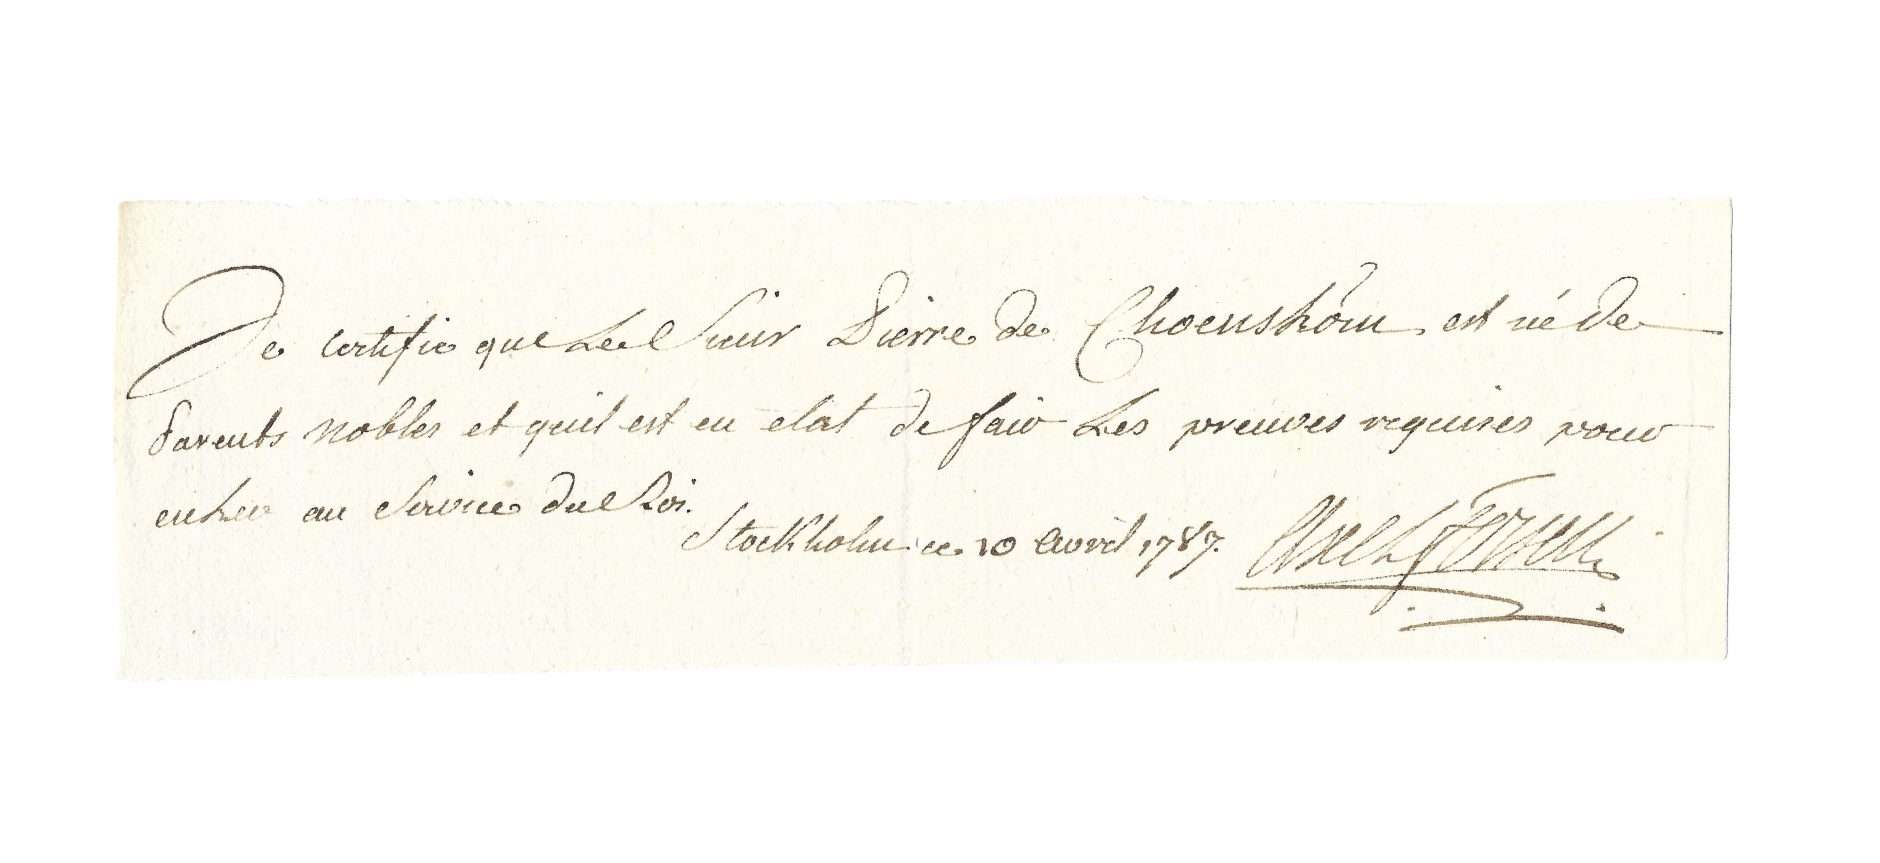 Je certifie que Le Sieur Pierre de Choenström est né de
Parents nobles et quil est en etat de faire Les preuves requises pour
entrer au Service du Roi.
Stockholm ce 10 Avril 1787. Axel Fersen